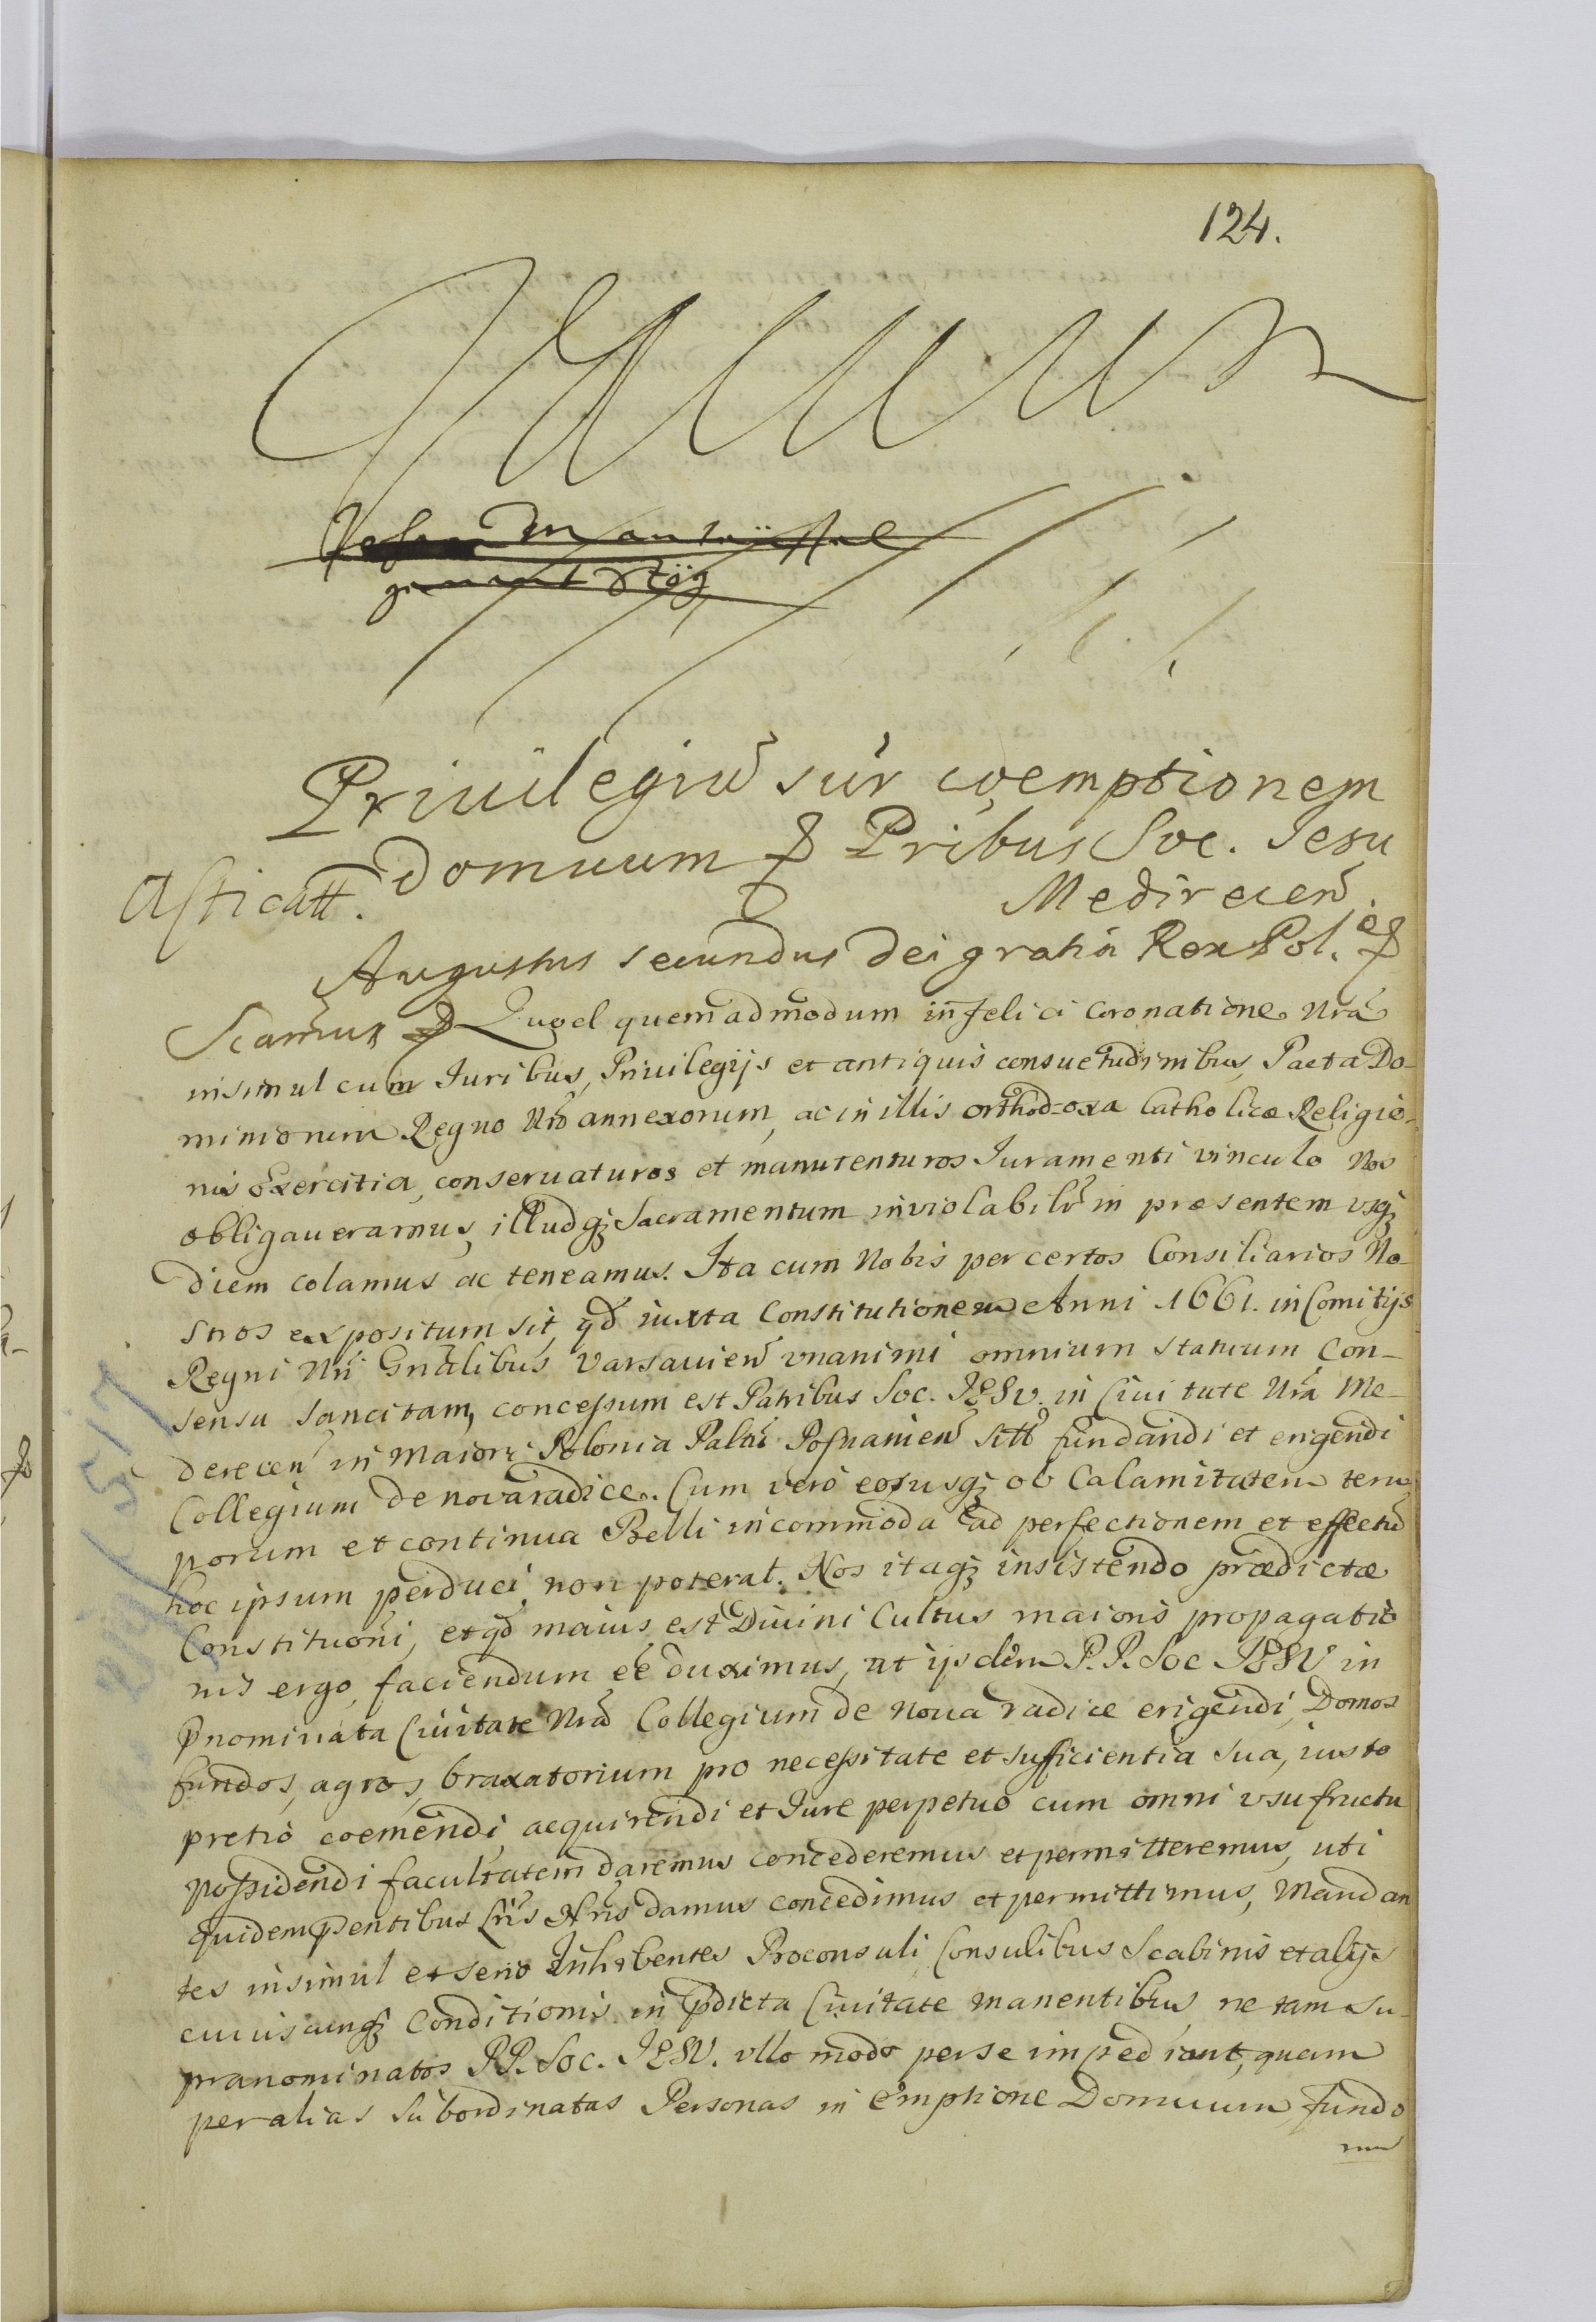 124.
Privilegiũ súr coemptionem
Domuum & Pribus Soc. Jesu
Asticatt.
Medirecen̄.
Augustus secundus Dei gratia Rex Pol. &
Scam̃us & Quod quem̃admodum in felici Coronatione Nrã
insimul cum Juribus, Privilegijs et antiquis consuetudinibus, Pacta Do-
miniorum Regno Nrõ annexorum, ac in illis orthodoxa Catholicæ Religio-
nis Exercitia, conservaturos et manutenturos Juramenti vinculo Nos
obligaveramus, illudq; Sacramentum inviolabilr̃ in præsentem usq;
Diem colamus ac teneamus. Ita cum Nobis per certos Consiliarios No-
stros expositum sit, qd̃ iuxta Constitutionem Anni 1661. in Comitijs
Regni Nri Gnãlibus Varsavien̄ vnanimi omnium statuum Con-
sensu sancitam, concessum est Patribus Soc. JESV. in Civitate Nrã Me-
derecen̄ in Maiori Polonia Palñi Posnanien̄ sitt̃ fundandi et erigendi
Collegium de nova radice. Cum verò eousq; ob Calamitatem tem-
porum et continua Belli incommoda ad perfectionem et effectũ
hoc ipsum perduci non poterat. Nos itaq; insistendo prædictæ
Constituõni, et qd̃ maius est Divini Cultus maioris propagatio-
nis ergo, faciendum eẽ duximus, ut ijsdem P.P. Soc JESV in
p̃nominata Civitate Nrã Collegium de Nova radice erigendi, Domos
fundos, agros, braxatorium pro necessitate et sufficientia sua, iusto
pretiò coemendi acquirendi et Jure perpetuo cum omni usufructu
possidendi facultatem daremus concederemus et permitteremus, uti
quidem p̃sentibus Lrĩs Nrĩs damus concedimus et permittimus, Mandan
tes insimul et seriò Inhibentes Proconsuli Consulibus Scabinis et alijs
cuiuscunq; Conditionis in p̃dicta Civitate manentibus, ne tam su-
pranominatos PP. Soc. JESV. vllo modo per se impediant, quam
per alias subordinatas Personas in Emptione Domuum, fundo
rum